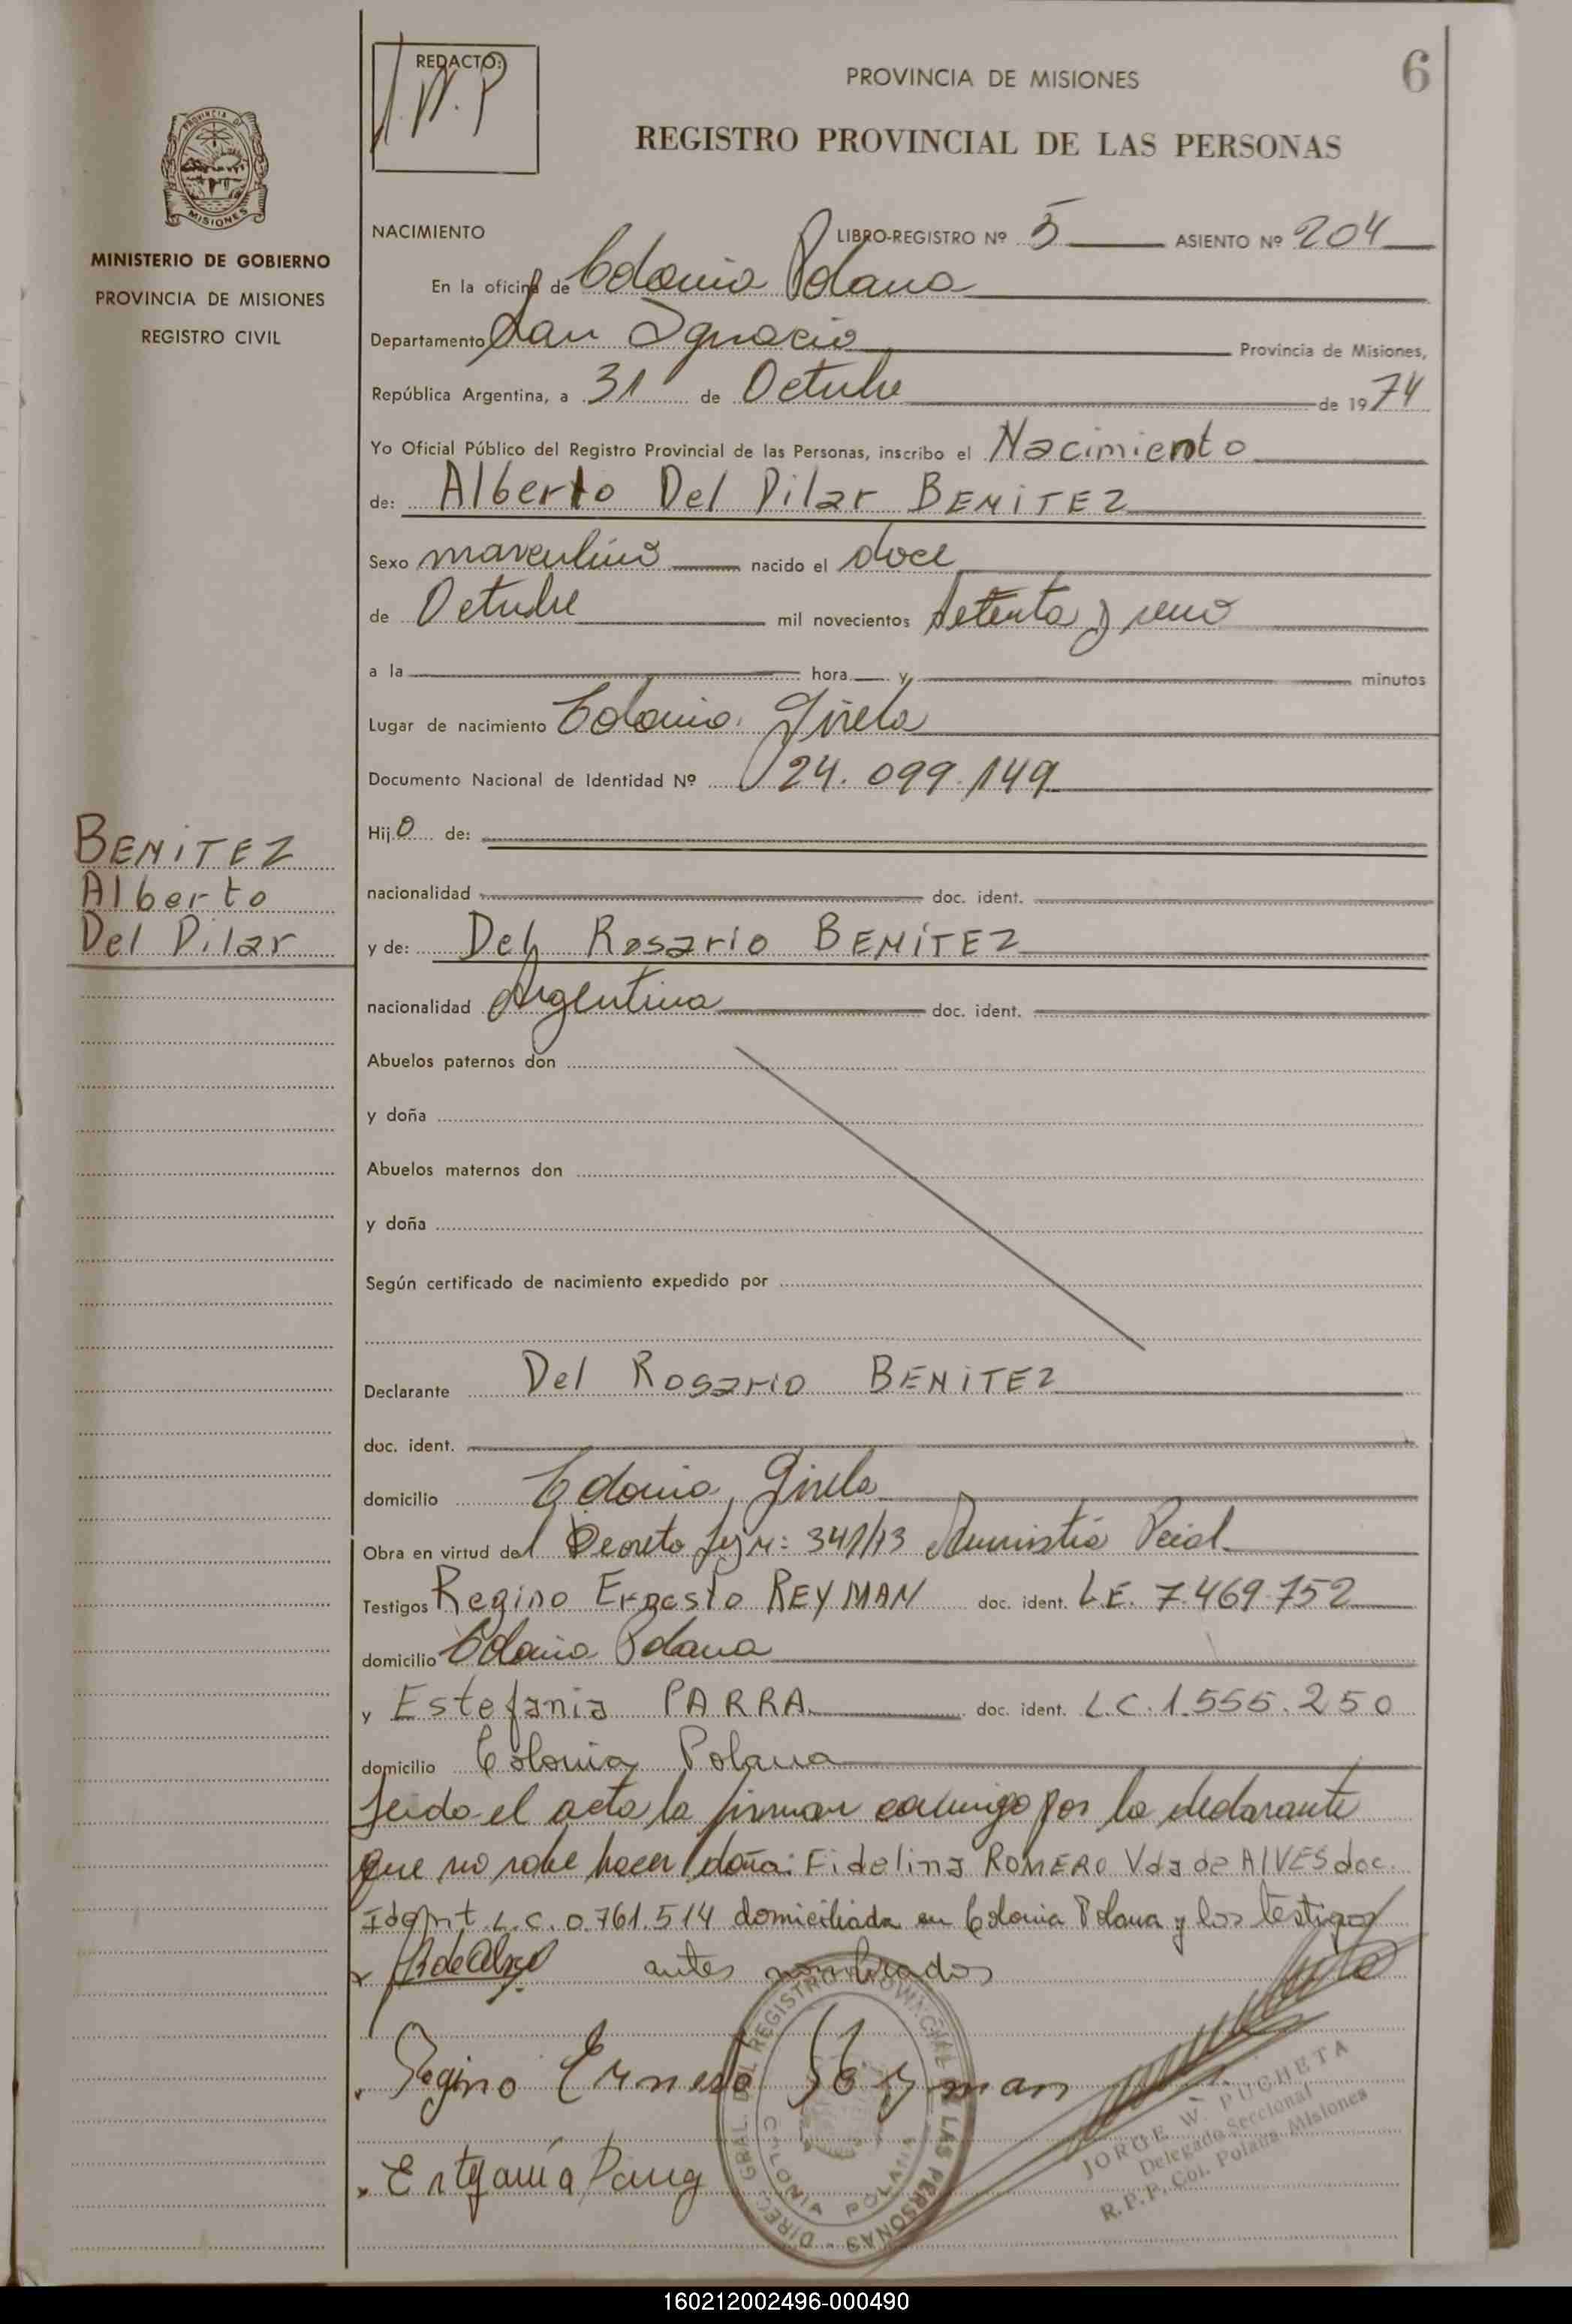 REDACTO:
J.W.P
PROVINCIA DE MISIONES
6
REGISTRO PROVINCIAL DE LAS PERSONAS
PROVINCIA DE
MISIONES
MINISTERIO DE GOBIERNO
PROVINCIA DE MISIONES
REGISTRO CIVIL
NACIMIENTO LIBRO-REGISTRO Nº 5 ASIENTO Nº 204
En la oficina de Colonia Polana
Departamento San Ignacio Provincia de Misiones,
República Argentina, a 31 de Octubre de 1974
Yo Oficial Público del Registro Provincial de las Personas, inscribo el Nacimiento
de: Alberto Del Pilar BENITEZ
Sexo masculino nacido el doce
de Octubre mil novecientos setenta y uno
a la hora y minutos
Lugar de nacimiento Colonia Gisela
Documento Nacional de Identidad Nº 24.099.149
Hijo de:
BENITEZ
Alberto
Del Pilar
nacionalidad doc. ident.
y de: Del Rosario BENÍTEZ
nacionalidad Argentina doc. ident.
Abuelos paternos don
y doña
Abuelos maternos don
y doña
Según certificado de nacimiento expedido por
Declarante Del Rosario BENITEZ
doc. ident.
domicilio Colonia Gisela
Obra en virtud del Decreto Ley N: 341/73 Amnistia Pcial.
Testigos Regino Ernesto REYMAN doc. ident. L.E. 7.469.752
domicilio Colonia Polana
y Estefania PARRA doc. ident. L.C. 1.555.250
domicilio Colonia Polana
Leida el acta la firman conmigo por la declarante
que no sabe hacer doña: Fidelina ROMERO Vda de ALVES doc.
Ident. L.C. 0.761.514 domiciliada en Colonia Polana y los testigos
antes nombrados
Regino Ernesto Reyman
Estefania Parra
DIREC. GRAL. DEL REGISTRO PROVINCIAL DE LAS PERSONAS
COLONIA POLANA
JORGE W. PUCHETA
Delegado Seccional
R.P.P. Col. Polana Misiones
160212002496-000490